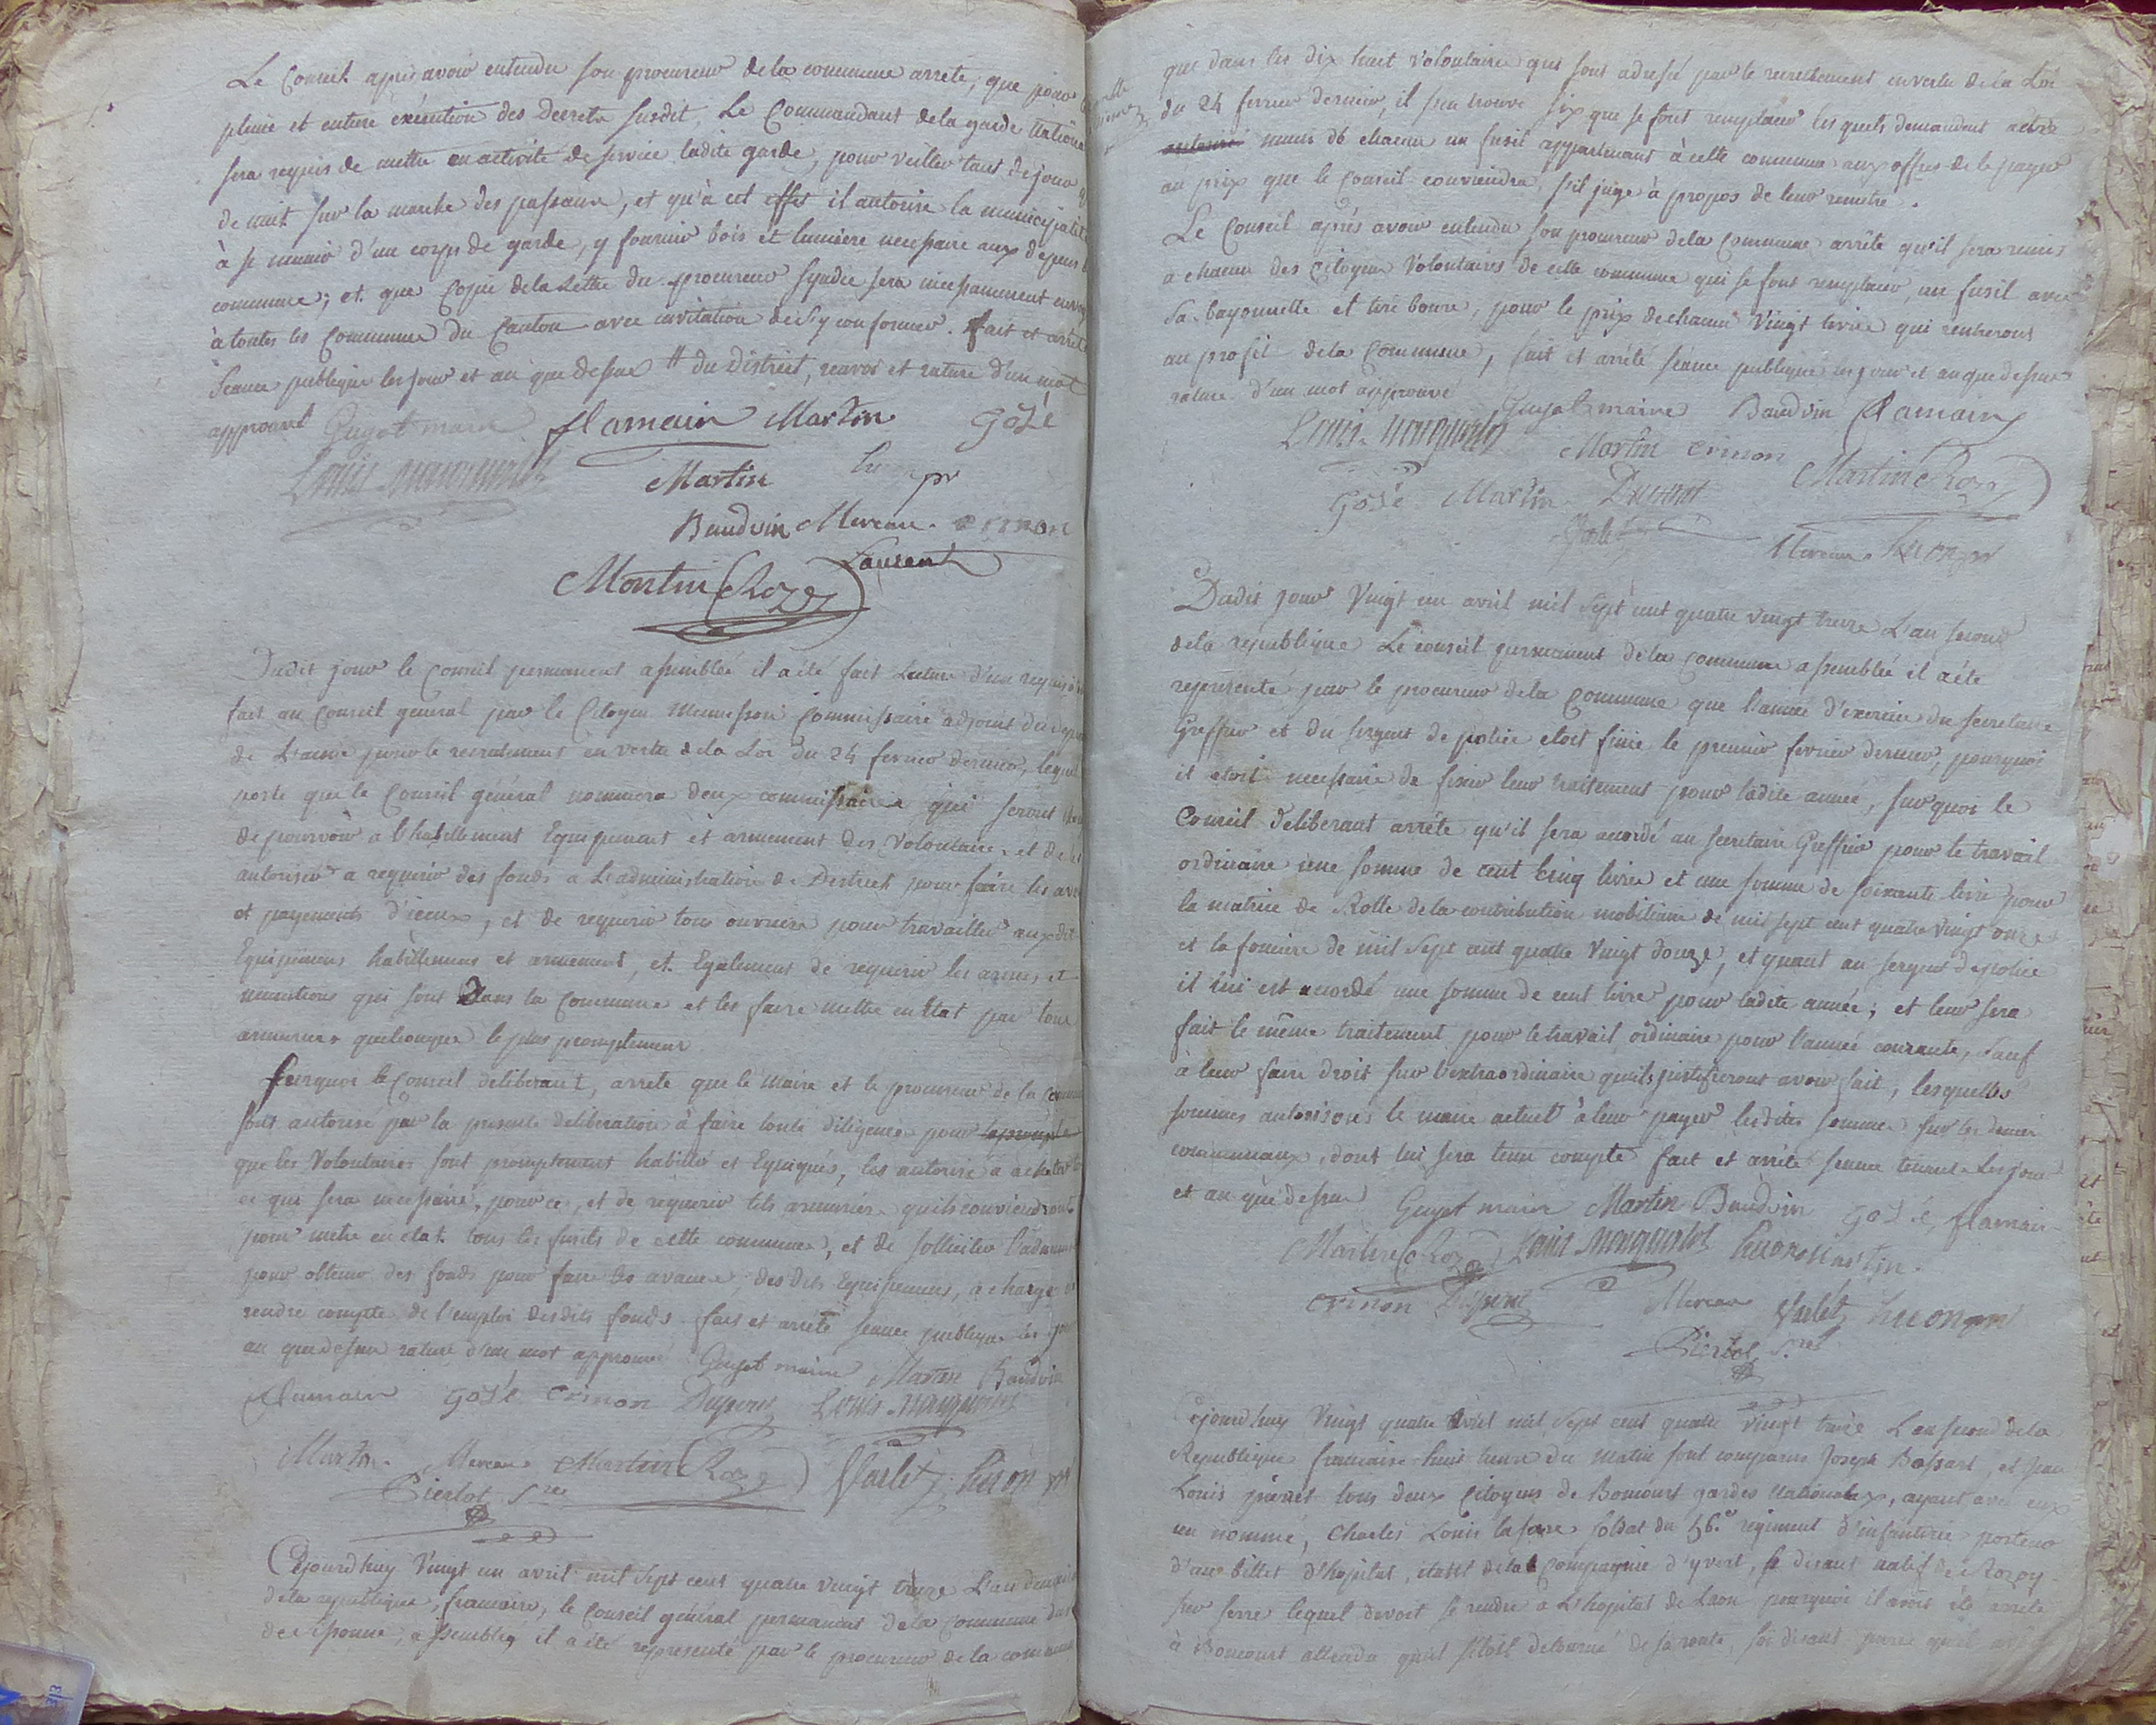 Le Conseil après avoir entendu son procureur de la commune arrete, que pour
pleine et entiere exécution des Decrets susdit, Le Commandant de la garde nationa
sera requis de mettre en activité de service ladite garde, pour veiller tant de jour
de nuit sur la marche des passans, et qu'à cet effet il autorise la municipalit
à se munir d'un corps de garde, y fournir bois et lumiere necessaire aux depens
commune; et que Copie de la Lettre du procureur syndic sera incessamment env
à toutes les Commune du Canton avec invitation de s'y conformer. fait et arrete
Seance publique les jour et an que dessus # du District, renvoi et rature d'un mot
approuvé Guyot maire flamain Martin Gosé
Louis Martin pr
Baudoin Mereau crinon
Laurent
Martin Roze
Dudit jour le Conseil permanent assemblée il a été fait Lecture d'un
fait au Conseil general par le Citoyen Commissaire adjoint du
de L'aisne pour le recrutement en vertu de la Loi du 24 fevrier dernier, lequel
porte que le Conseil général nommera deux commissaires qui seront
de pourvoir a l'habillement Equipement et armement des Volontaires et de
autoriser a requerir des fonds a L'administration de District pour faire les ava
et payements d'iceux, et de requerir tous ouvriers pour travailler auxdit
Equipemens habillemens et armement, et Egalement de requerir les armes et
munitions qui sont Dans la Commune et les faire mettre en Etat par tous
armuriers quelconques le plus promptement
surquoi le Conseil deliberant, arrete que le Maire et le procureur de la
sont autorisé par la presente deliberation à faire toute diligence pour
que les Volontaires sont promptement habillés et Equipés, les autorise a acheter
ce qui sera necessaire, pour ce, et de requerir tels armuriers quils conviendront
pour metre en etat tous les fusils de cette commune, et de solliciter
pour obtenir des fonds pour faire les avances, des dits Equipemens, a charge
rendre compte de l'emploi desdits fonds fait et arreté seance publique les
an que dessus rature d'un mot approuvé Guyot maire Martin Baudoin
flamain Gosé crinon Dupont Louis
Martin Mereau Martin Roze Varlet pr
Pierlot Sre
Cejourdhuy Vingt un avril mil Sept cent quatre vingt treize L'an
de la republique, francaise, le Conseil général permanent de la Commune
de Sissonne, assemblés il a été representé par le procureur de la commune
que dans les dix huit Volontaires qui sont par le recrutement en vertu de la Loi
du 24 fevrier dernier, il s'en trouve six que se font remplacer les quels demandent
munis de chacun un fusil appartenant à cette commune aux offres de le payer
au prix que le Conseil conviendra, s'il juge à propos de leur remettre.
Le Conseil après avoir entendu son procureur de la Commune arrête qu'il sera remis
a chacun des Citoyens Volontaires de cette commune qui se font remplacer, un fusil avec
sa bayonnette et tire boure, pour le prix de chacun Vingt livres qui rentreront
au profit de la Commune, fait et arrêté seance publique les jour et an que dessus
rature d'un mot approuvé Guyot maire Baudvin flamain
Louis Martin crinon Martin Roze
Gosé Martin Dupont
Varlet Mereau pr
Dudit jour Vingt un avril mil sept cent quatre vingt treize L'an second
de la republique Le conseil permanent de la Commune assemblée il a été
representé par le procureur de la Commune que l'année d'exercice du secretaire
Greffier et du sergent de police etoit finie le premier fevrier dernier, pourquoi
il etoit necessaire de fixer leur traitement pour ladite année, sur quoi le
Conseil deliberant arrête qu'il sera accordé au secretaire Greffier pour le travail
ordinaire une somme de cent cinq livres et une somme de soixante livre pour
la matrice de Rolle de la contribution mobiliaire de mil sept cent quatre vingt onze
et la fonciere de mil sept cent quatre vingt douze, et quant au sergent de police
il lui est accordé une somme de cent livre pour ladite année; et leur sera
fait le même traitement pour le travail ordinaire pour l'année courante, sauf
à leur faire droit sur l'extraordinaire qu'ils justifieront avoir fait, lesquelles
sommes autorisons le maire actuel à leur payer lesdites sommes sur les denier
communaux, dont lui sera tenu compte fait et arrêté seance tenante Les jour
et an que dessus Guyot maire Martin Baudvin Gosé flamain
Martin Roze Louis Martin
crinon Dupont Mereau Varlet pr
Pierlot Sre
Cejourdhuy Vingt quatre avril mil sept cent quatre vingt treize L'an second de la
Republique francaise huit heure du matin sont comparus Joseph Bossart, et Jean
Louis tous deux Citoyens de Boncourt gardes nationaux, ayant avec eux
un nommé, Charles Louis soldat du 56.e regiment d'infanterie porteur
d'un billet d'hopital, de la Compagnie d'yvert, se disant natif de Rozoy
sur serre lequel devoit se rendre a L'hopital de Laon pourquoi il avoit été arreté
à Boncourt attendu qu'il s'etoit detourné de sa route, soi disant